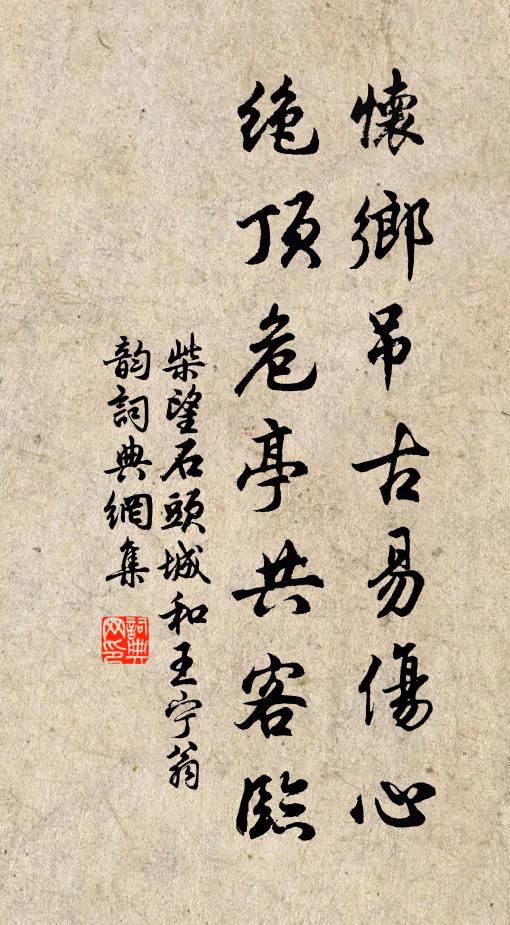 懷鄉吊古易傷心
绝頂危亭共客臨
柴望石頭城和王宁翁
韵詞典網集
詞典
网印